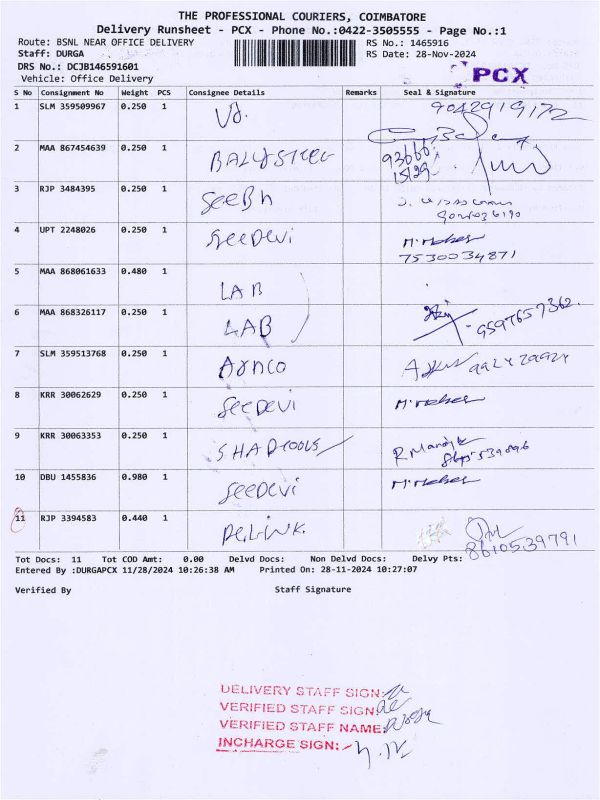 THE PROFESSIONAL COURIERS, COIMBATORE
Delivery Runsheet - PCX - Phone No.:0422-3505555 - Page No.:1
Route: BSNL NEAR OFFICE DELIVERY RS No.: 1465916
Staff: DURGA RS Date: 28-Nov-2024
DRS No.: DCJB146591601
Vehicle: Office Delivery PCX
S No Consignment No Weight PCS Consignee Details Remarks Seal & Signature
1 SLM 359509967 0.250 1 9042919172
2 MAA 867454639 0.250 1 BALU STEEL 93666 15129
3 RJP 3484395 0.250 1 SeeBh
4 UPT 2248026 0.250 1 SEEDEVi 7530034871
5 MAA 868061633 0.480 1 LAB
6 MAA 868326117 0.250 1 LAB 9597657362
7 SLM 359513768 0.250 1 Arnco
8 KRR 30062629 0.250 1 SEEDEVi
9 KRR 30063353 0.250 1 SHADTOOLS
10 DBU 1455836 0.980 1 SEEDEVi
11 RJP 3394583 0.440 1 DELiNK. 8610539791
Tot Docs: 11 Tot COD Amt: 0.00 Delvd Docs: Non Delvd Docs: Delvy Pts:
Entered By :DURGAPCX 11/28/2024 10:26:38 AM Printed On: 28-11-2024 10:27:07
Verified By Staff Signature
DELIVERY STAFF SIGN:
VERIFIED STAFF SIGN:
VERIFIED STAFF NAME:
INCHARGE SIGN: